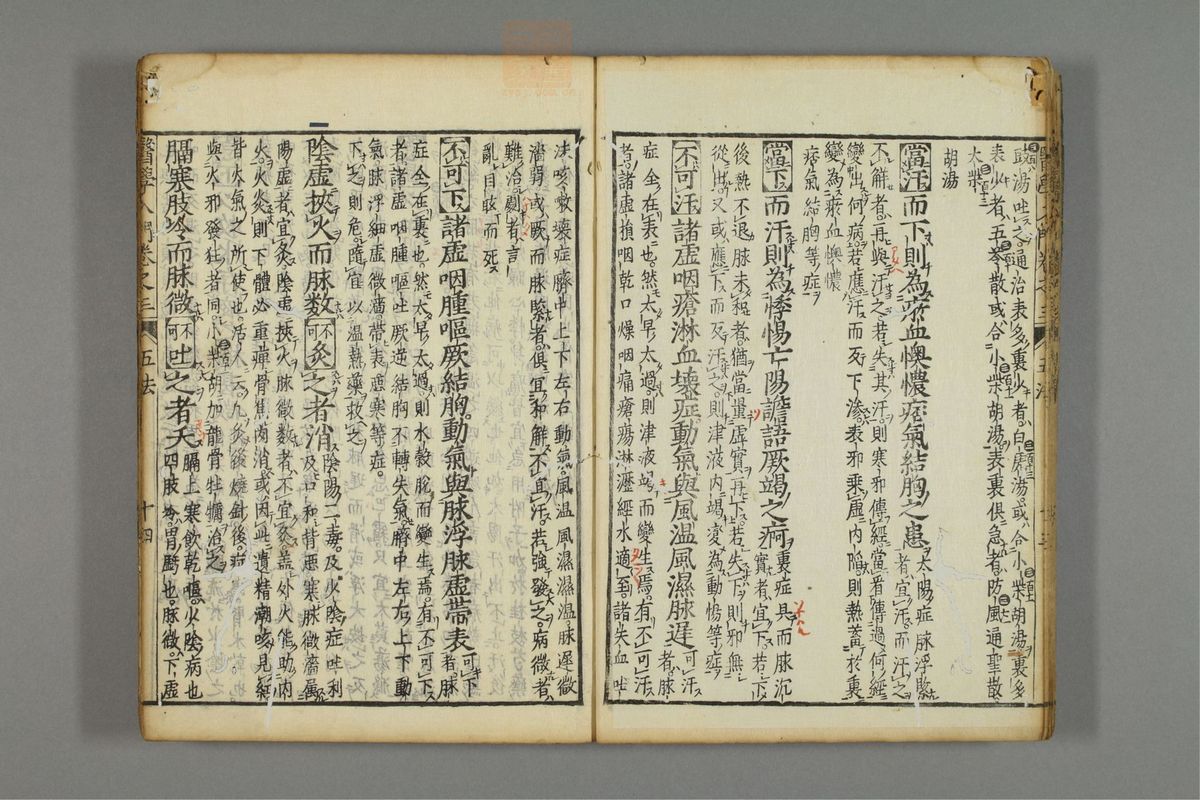 豉湯吐之通治表多裏少者白虎湯或合小柴胡湯裏多
表少者五苓散或合小柴胡湯表裏俱急者防風通聖散
大柴
胡湯
當汗而下則為瘀血懊憹痞氣結胸之患
太陽症脉浮緊
者宜汗而汗之
不解者再與汗之若失其汗則寒邪傳經當看傳過何經
變出何病若應汗而反下滲表邪乘虛內陷則熱蓄於裏
變為瘀血懊憹
痞氣結胸等症
當下而汗則為悸惕亡陽譫語厥竭之痾
裏症具而脉沉
實者宜下若下
後熱不退脉未和者猶當量虛實再下若失下則邪無
從出又或應下而反汗之則津液內竭變為動惕等症
不可汗諸虛咽瘡淋血壞症動氣與風温風濕脉遲
不可汗
者脉
症全在表也然太早太過則津液竭而變生焉有不可汗
者諸虛損咽乾口燥咽痛瘡瘍淋瀝經水適至諸失血吐
沬咳嗽壞症臍中上下左右動氣風温風濕濕温脉遲微
濇弱或厥而脉緊者俱宜和解不宜汗若強發之病微者
難治劇者言
亂目眩而死
不可下諸虛咽腫嘔厥結胸動氣與脉浮脉虛帶表
可下
者脉
症全在裏也然太早太過則水穀脫而變生焉有不可下
者諸虛咽腫嘔吐厥逆結胸不轉失氣臍中左右上下動
氣脉浮細虛微濇帶表惡寒等症
下之則危隨宜以温熱藥救之
陰虛挾火而脉數不可灸之者消
陰陽二毒及少陰症吐利
及口和背惡寒脉微濇屬
陽虛者宜灸陰虛挾火脉微數者不宜灸蓋外火能助內
火火灸則下體必重痺骨焦肉消或因此遺精潮咳見紅
皆火氣之所使也活人云凡灸後燒針後病
與火邪發狂者同小柴胡加龍骨牡蠣治之
膈寒肢冷而脉微不可吐之者夭
膈上寒飲乾嘔少陰病也
四肢冷胃厥也脉微下虛
醫學入門卷之三
五法
十四